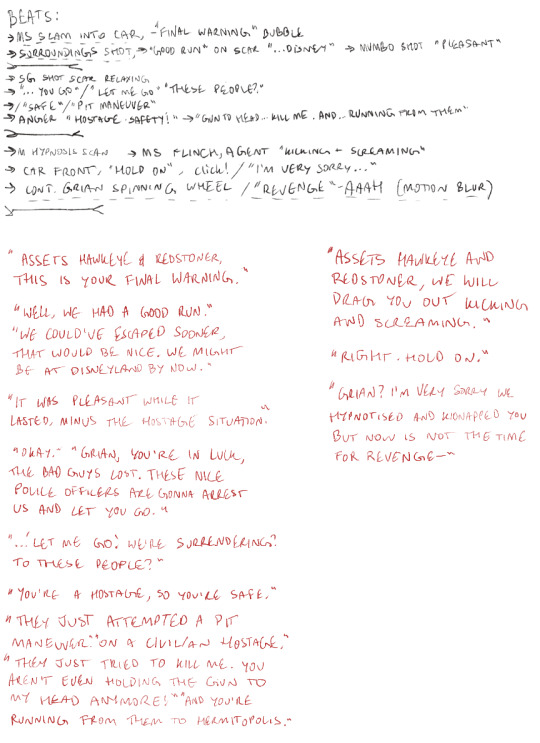 BEATS:
→ MS SLAM INTO CAR, -"FINAL WARNING" BUBBLE
→ SURROUNDINGS SHOT, → "GOOD RUN" ON SCAR "...DISNEY" → MUMBO SHOT "PLEASANT"
→ SG SHOT SCAR RELAXING
→ "... YOU GO" / "LET ME GO" "THESE PEOPLE?"
→ / "SAFE" / "PIT MANEUVER"
→ ANGER "HOSTAGE SAFETY!" → "GUN TO HEAD... KILL ME. AND... RUNNING FROM THEM"
→ M HYPNOSIS SCAN → MS FLINCH, AGENT "KICKING + SCREAMING"
→ CAR FRONT, "HOLD ON", CLICK! / "I'M VERY SORRY..."
→ CONT. GRIAN SPINNING WHEEL / "REVENGE" - AAAH (MOTION BLUR)
"ASSETS HAWKEYE & REDSTONER,
THIS IS YOUR FINAL WARNING."
"WELL, WE HAD A GOOD RUN."
"WE COULD'VE ESCAPED SOONER,
THAT WOULD BE NICE. WE MIGHT
BE AT DISNEYLAND BY NOW."
"IT WAS PLEASANT WHILE IT
LASTED, MINUS THE HOSTAGE SITUATION."
"OKAY." "GRIAN, YOU'RE IN LUCK,
THE BAD GUYS LOST. THESE NICE
POLICE OFFICERS ARE GONNA ARREST
US AND LET YOU GO."
"...'LET ME GO'. WE'RE SURRENDERING?
TO THESE PEOPLE?"
"YOU'RE A HOSTAGE, SO YOU'RE SAFE."
"THEY JUST ATTEMPTED A PIT
MANEUVER." "ON A CIVILIAN HOSTAGE."
"THEY JUST TRIED TO KILL ME. YOU
AREN'T EVEN HOLDING THE GUN TO
MY HEAD ANYMORE!" "AND YOU'RE
RUNNING FROM THEM TO HERMITOPOLIS."
"ASSETS HAWKEYE AND
REDSTONER, WE WILL
DRAG YOU OUT KICKING
AND SCREAMING."
"RIGHT. HOLD ON."
"GRIAN? I'M VERY SORRY WE
HYPNOTISED AND KIDNAPPED YOU
BUT NOW IS NOT THE TIME
FOR REVENGE—"